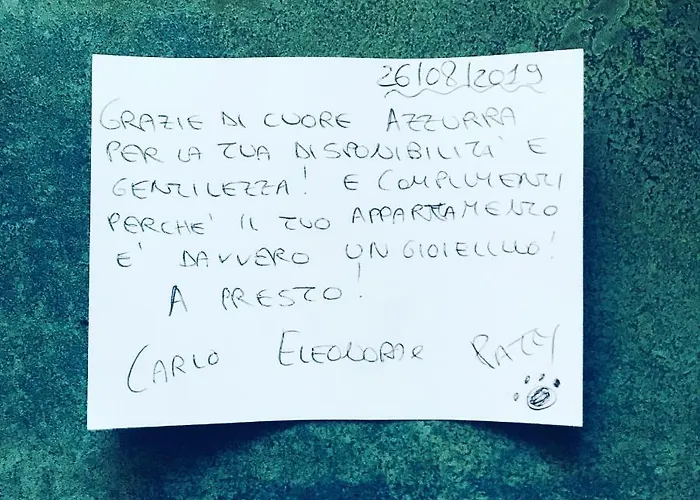 26/08/2019
GRAZIE DI CUORE AZZURRA
PER LA TUA DISPONIBILITÀ E
GENTILEZZA! E COMPLIMENTI
PERCHE' IL TUO APPARTAMENTO
E' DAVVERO UN GIOIELLLO!
A PRESTO!
CARLO ELEONORA e PATTY